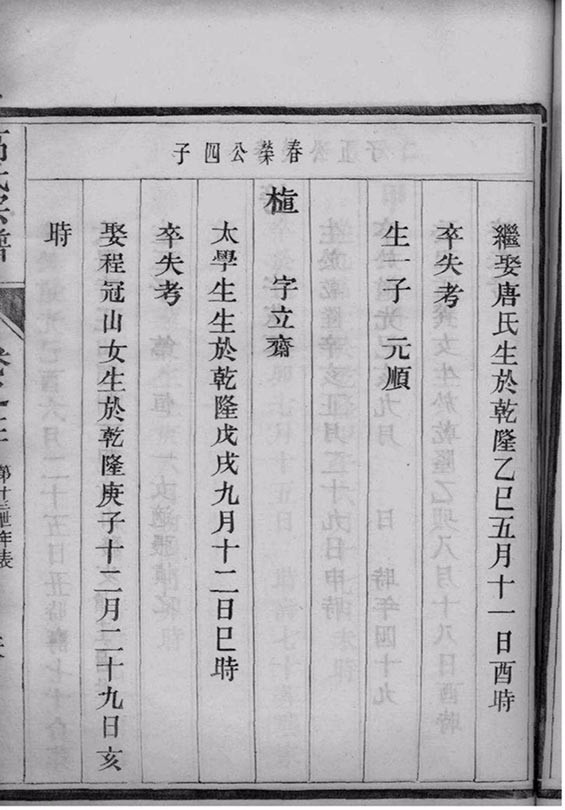 春榮公四子
繼娶唐氏生於乾隆乙巳五月十一日酉時
卒失考
生一子 元順
植 字立齋
太學生生於乾隆戊戌九月十二日巳時
卒失考
娶程冠山女生於乾隆庚子十二月二十九日亥
時
氏宗譜